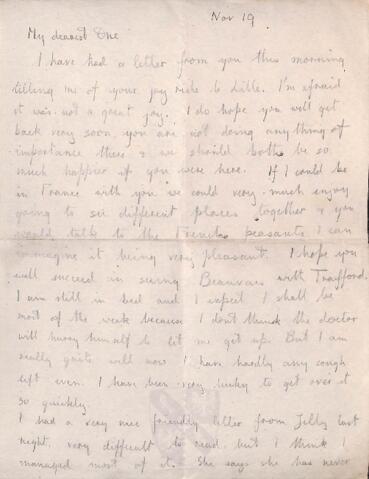 Nov 19
My dearest One
I have had a letter from you this morning
telling me of your joy ride to Lille. I'm afraid
it was not a great joy. I do hope you will get
back very soon, you are not doing anything of
importance there & we should both be so
much happier if you were here. If I could be
in France with you we could very much enjoy
going to see different places together & you
would talk to the French peasants I can
imagine it being very pleasant. I hope you
will succeed in seeing Beauvais with Trafford.
I am still in bed and I expect I shall be
most of the week because I don't think the doctor
will hurry himself to let me get up. But I am
really quite well now I have hardly any cough
left even. I have been very lucky to get over it
so quickly.
I had a very nice friendly letter from Jilly last
night, very difficult to read, but I think I
managed most of it. She says she has never